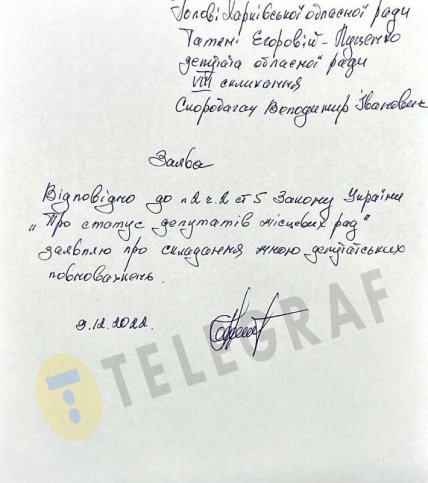 Голові Харківської обласної ради
Татяні Єгоровій-Луценко
депутата обласної ради
VIII скликання
Скоробагач Володимир Іванович
Заява
Відповідно до п2 ч.2 ст5 Закону України
„Про статус депутатів місцевих рад"
заявляю про складання мною депутатських
повноважень.
9.12.2022.
TELEGRAF